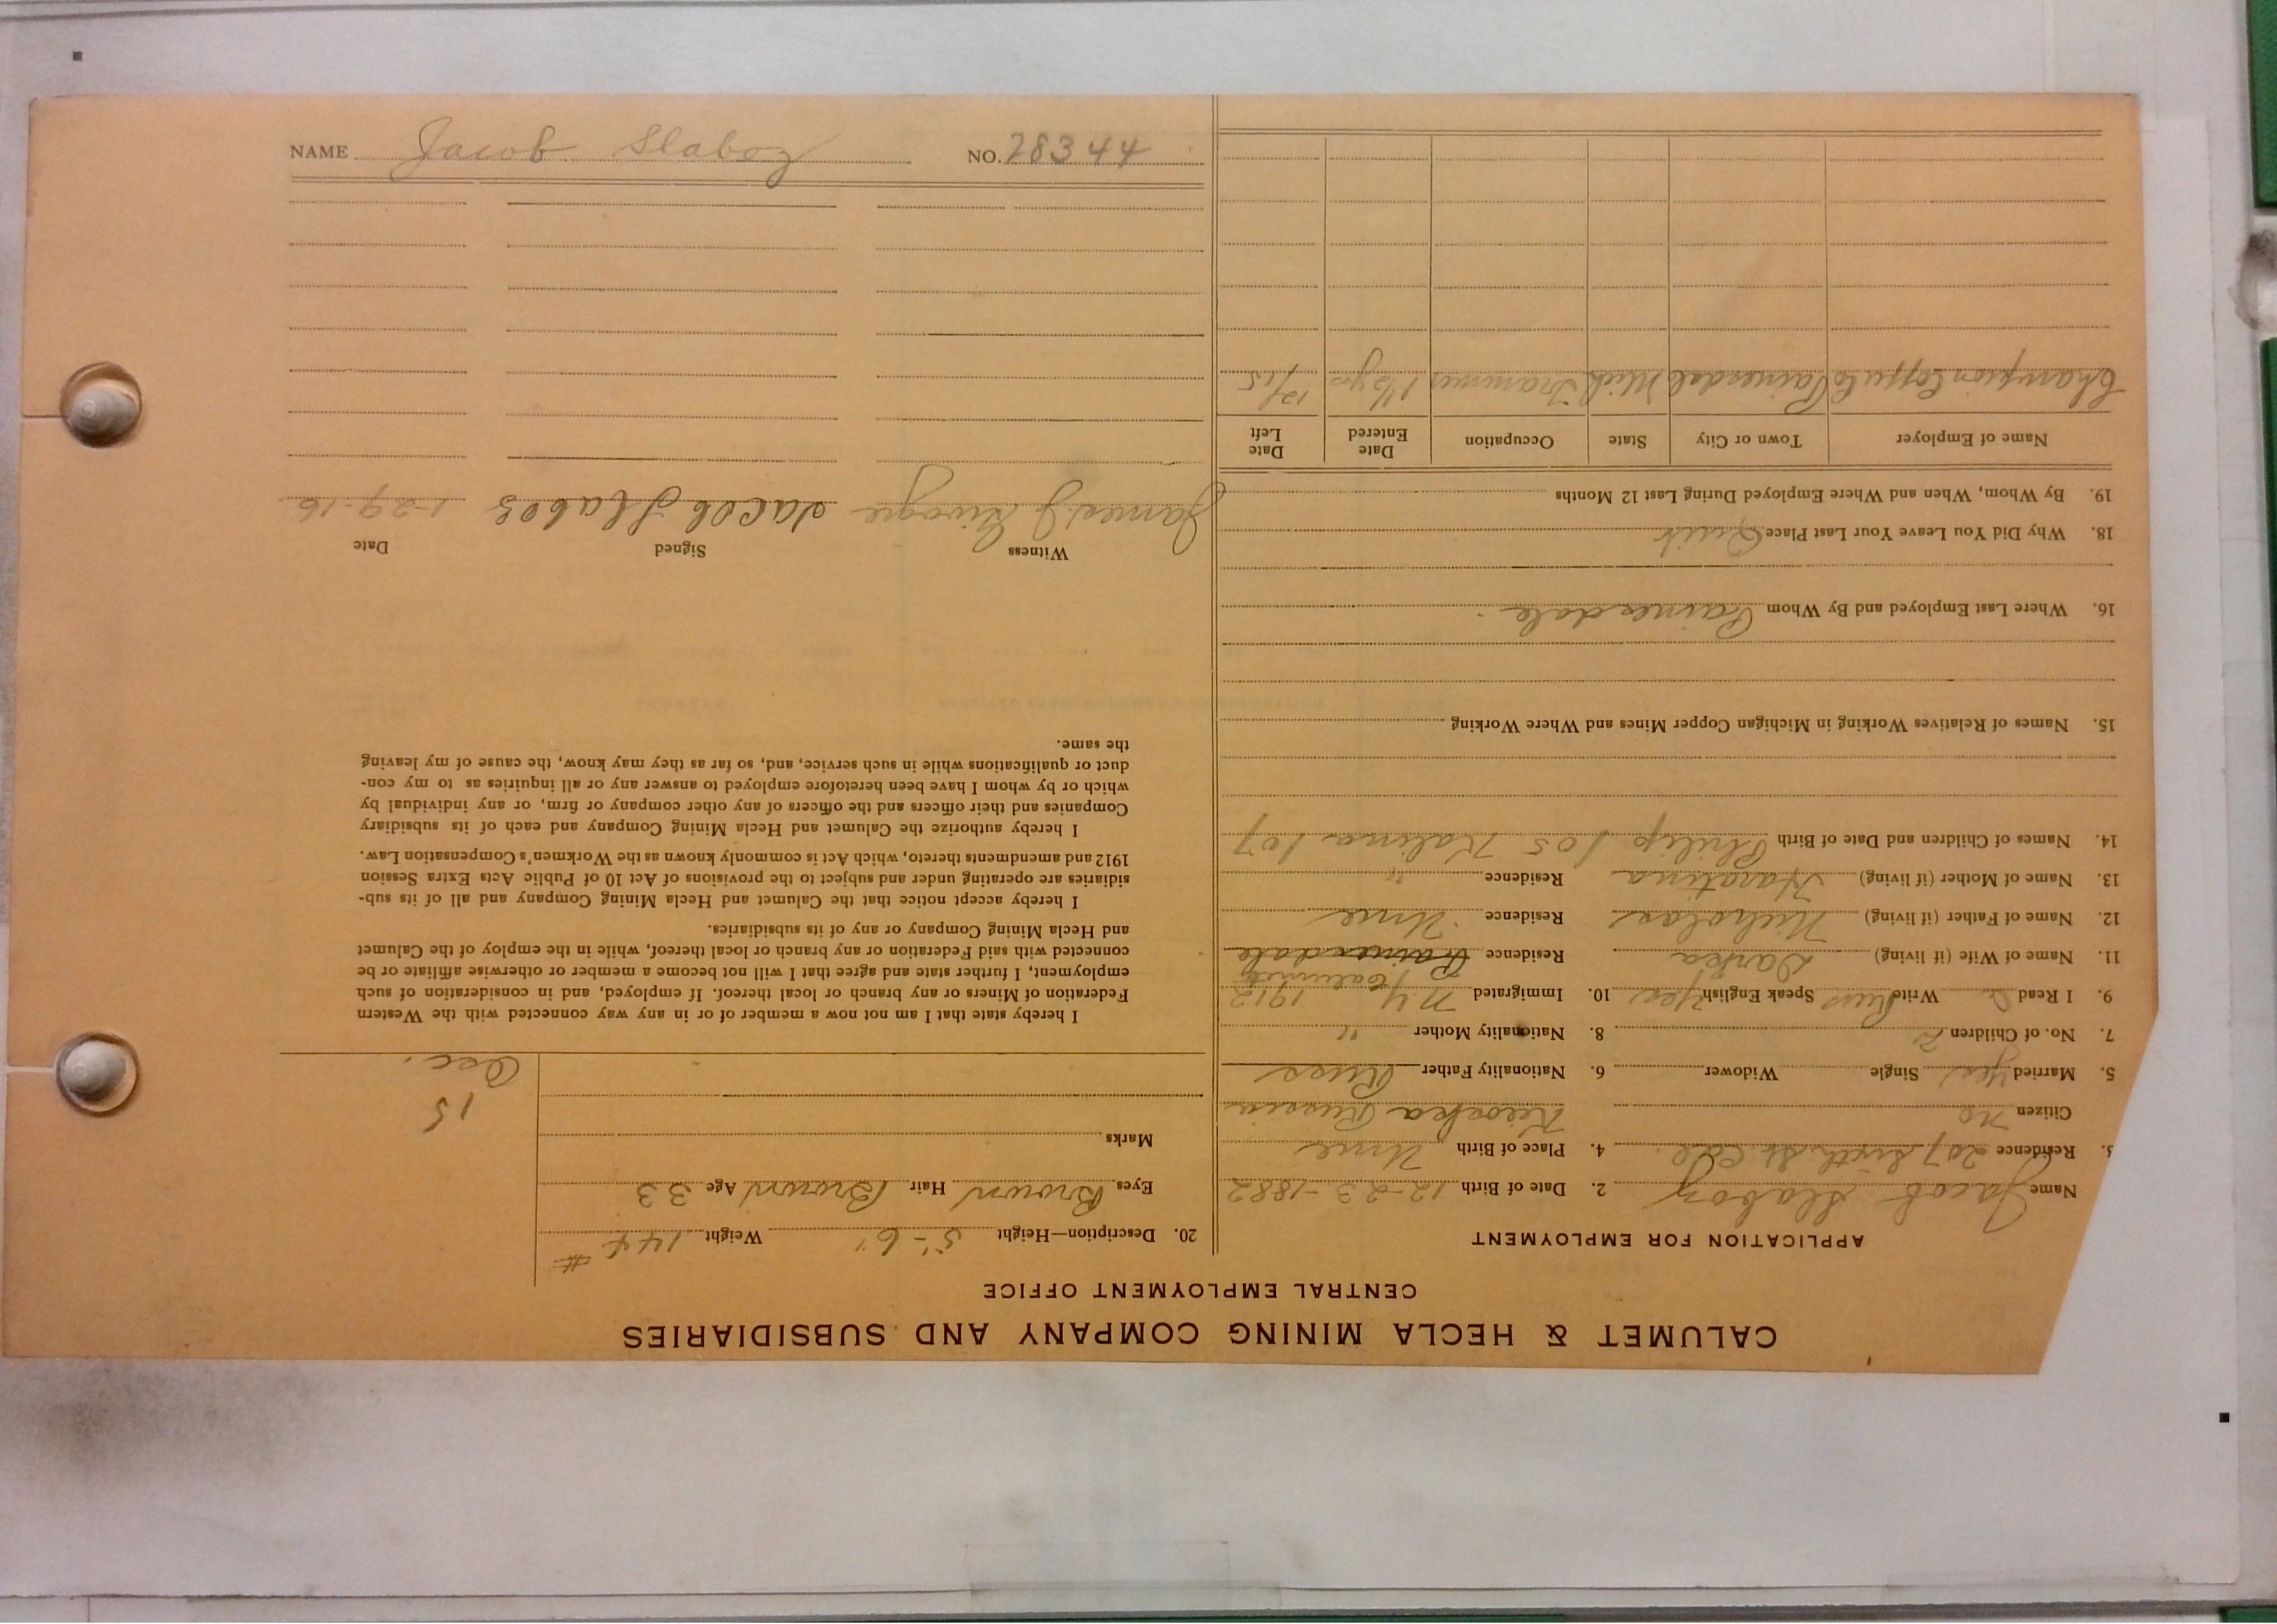 NAME Jacob Slaboz NO. 28344
CALUMET & HECLA MINING COMPANY AND SUBSIDIARIES
CENTRAL EMPLOYMENT OFFICE
APPLICATION FOR EMPLOYMENT
Name Jacob Slaboz 2. Date of Birth 12-23-1882
3. Residence 207 Sixth St. Cal. 4. Place of Birth
Citizen no Russia
5. Married Yes Single Widower 6. Nationality Father Russ
7. No. of Children 2 8. Nationality Mother "
9. I Read Write Russ Speak English Yes 10. Immigrated N Y 1912
Calumet
11. Name of Wife (if living) Darka Residence Painesdale
12. Name of Father (if living) Nicholas Residence
13. Name of Mother (if living) Haratina Residence "
14. Names of Children and Date of Birth Philip 105 Kalina 107
15. Names of Relatives Working in Michigan Copper Mines and Where Working
16. Where Last Employed and By Whom Painesdale
18. Why Did You Leave Your Last Place Quit
19. By Whom, When and Where Employed During Last 12 Months
Name of Employer Town or City State Occupation Date Entered Date Left
Champion Copper Co Painesdale Mich Trammer 1½ yrs 12/15
20. Description—Height 5'-6" Weight 144 #
Eyes Brown Hair Brown Age 33
Marks
15
Occ.
I hereby state that I am not now a member of or in any way connected with the Western
Federation of Miners or any branch or local thereof. If employed, and in consideration of such
employment, I further state and agree that I will not become a member or otherwise affiliate or be
connected with said Federation or any branch or local thereof, while in the employ of the Calumet
and Hecla Mining Company or any of its subsidiaries.
I hereby accept notice that the Calumet and Hecla Mining Company and all of its sub-
sidiaries are operating under and subject to the provisions of Act 10 of Public Acts Extra Session
1912 and amendments thereto, which Act is commonly known as the Workmen's Compensation Law.
I hereby authorize the Calumet and Hecla Mining Company and each of its subsidiary
Companies and their officers and the officers of any other company or firm, or any individual by
which or by whom I have been heretofore employed to answer any or all inquiries as to my con-
duct or qualifications while in such service, and, so far as they may know, the cause of my leaving
the same.
Witness Signed Date
James J Jacob Slaboz 1-29-16